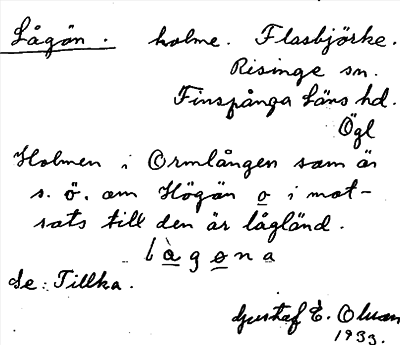 Lågön. holme. Flasbjörke.
Risinge sn.
Finspånga Läns hd.
Ögl
Holmen i Ormlången som är
s. ö. om Högön o i mot-
sats till den är lågländ.
lågöna
Se: Tillka.
Gustaf E. Olsson
1933.